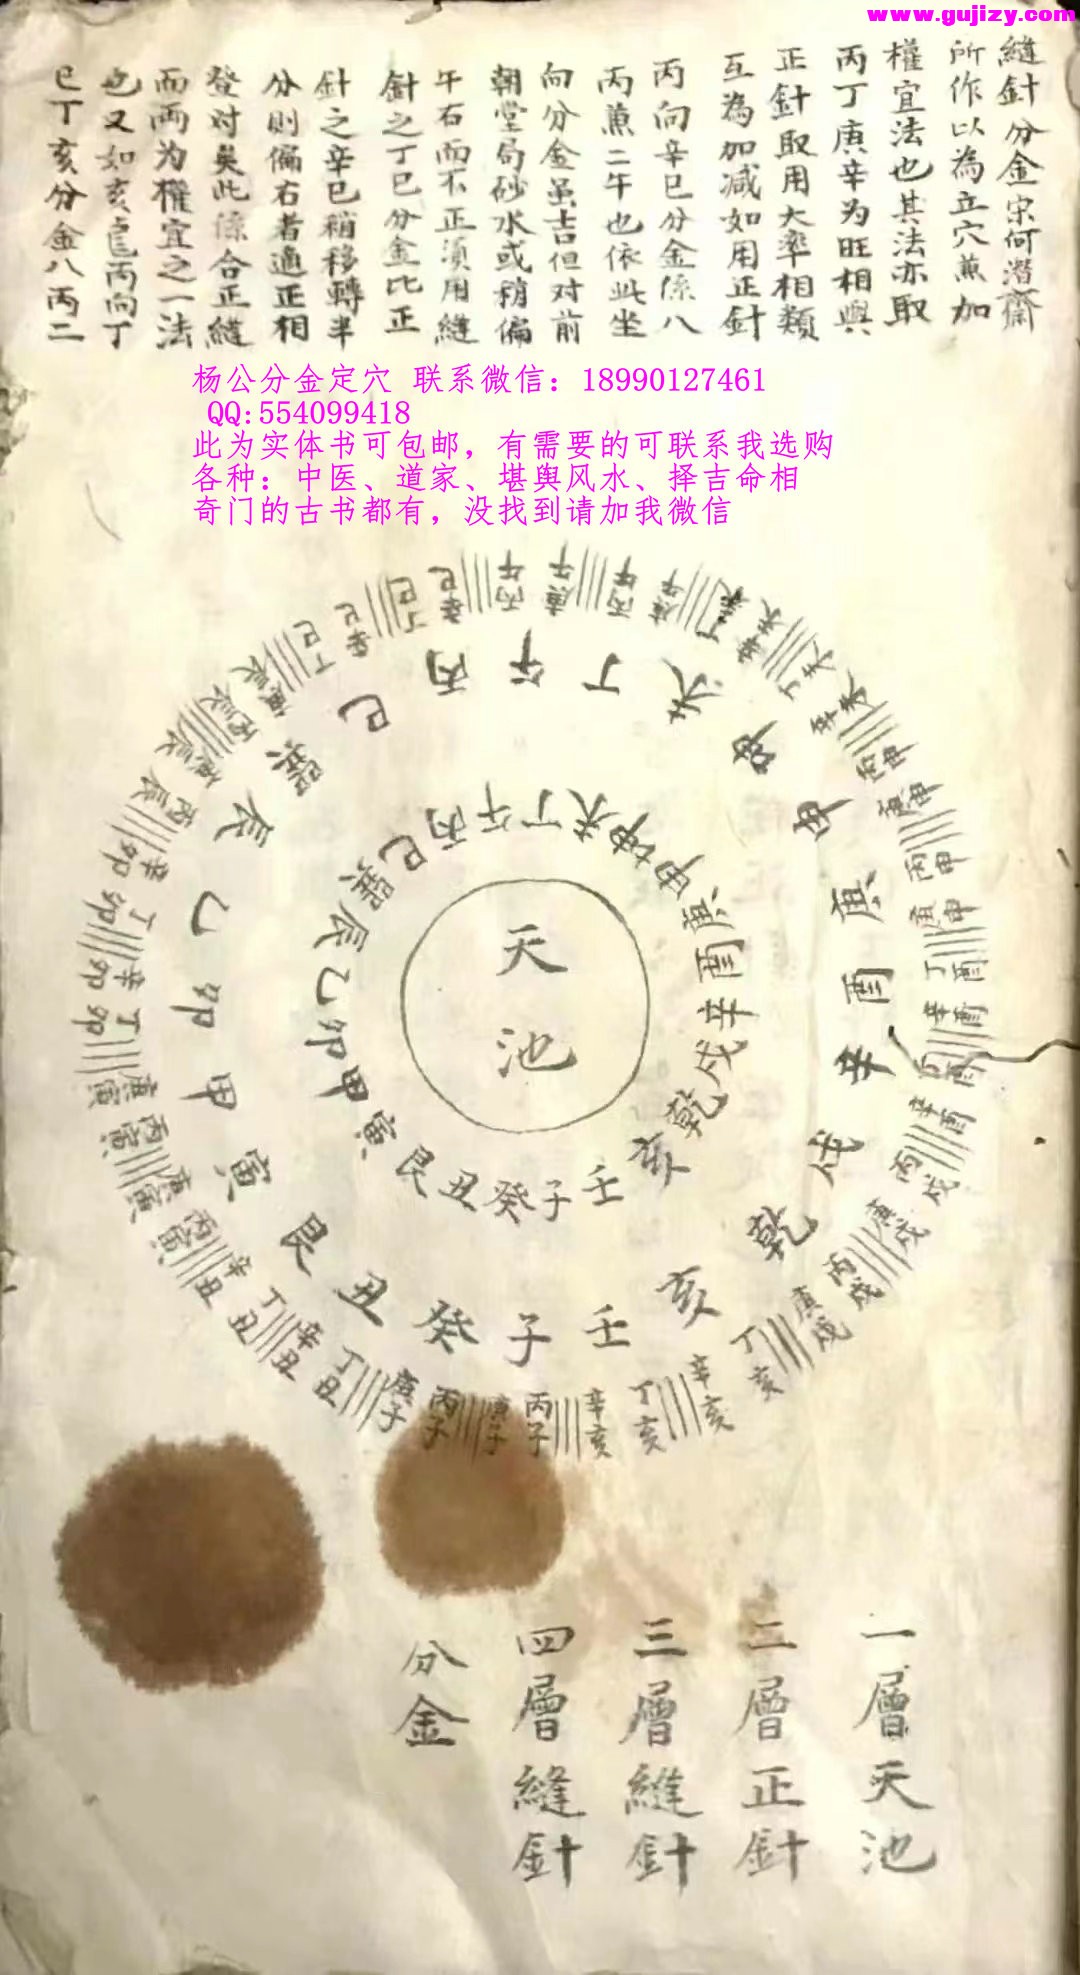 www.gujizy.com
縫針分金宋何潛齋
所作以為立穴蒹加
權宜法也其法亦取
丙丁庚辛为旺相與
正針取用大率相類
互為加减如用正針
丙向辛巳分金係八
丙蒹二午也依此坐
向分金虽吉但对前
朝堂局砂水或稍偏
午右而不正須用縫
針之丁巳分金比正
針之辛巳稍移轉半
分則偏右者適正相
登对矣此係合正縫
而两为權宜之一法
也又如亥龍丙向丁
巳丁亥分金八丙二
杨公分金定穴 联系微信：18990127461
QQ:554099418
此为实体书可包邮，有需要的可联系我选购
各种：中医、道家、堪舆风水、择吉命相
奇门的古书都有，没找到请加我微信
天池
壬子癸丑艮寅甲卯乙辰巽巳丙午丁未坤申庚酉辛戌乾亥
壬子癸丑艮寅甲卯乙辰巽巳丙午丁未坤申庚酉辛戌乾亥
丙子 庚子 丙子 庚子
丁丑 辛丑 丁丑 辛丑
丙寅 庚寅 丙寅 庚寅
丁卯 辛卯 丁卯 辛卯
丙辰 庚辰 丙辰 庚辰
丁巳 辛巳 丁巳 辛巳
丙午 庚午 丙午 庚午
丁未 辛未 丁未 辛未
丙申 庚申 丙申 庚申
丁酉 辛酉 丁酉 辛酉
丙戌 庚戌 丙戌 庚戌
丁亥 辛亥 丁亥 辛亥
一層天池
二層正針
三層縫針
四層縫針
分金